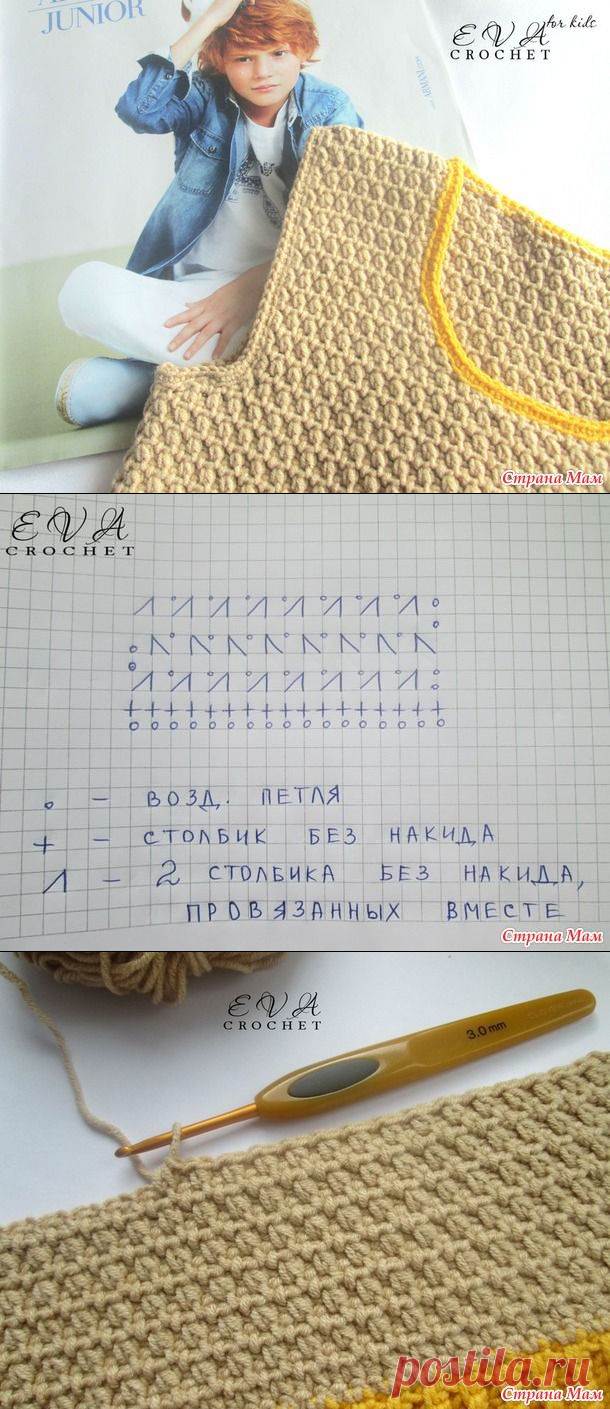 JUNIOR
EVA for kids
CROCHET
ARMANI.COM
Страна Мам
EVA
CROCHET
- ВОЗД. ПЕТЛЯ
+ - СТОЛБИК БЕЗ НАКИДА
- 2 СТОЛБИКА БЕЗ НАКИДА,
ПРОВЯЗАННЫХ ВМЕСТЕ
Страна Мам
EVA
CROCHET
3.0mm
CLOVER
postila.ru
Страна Мам